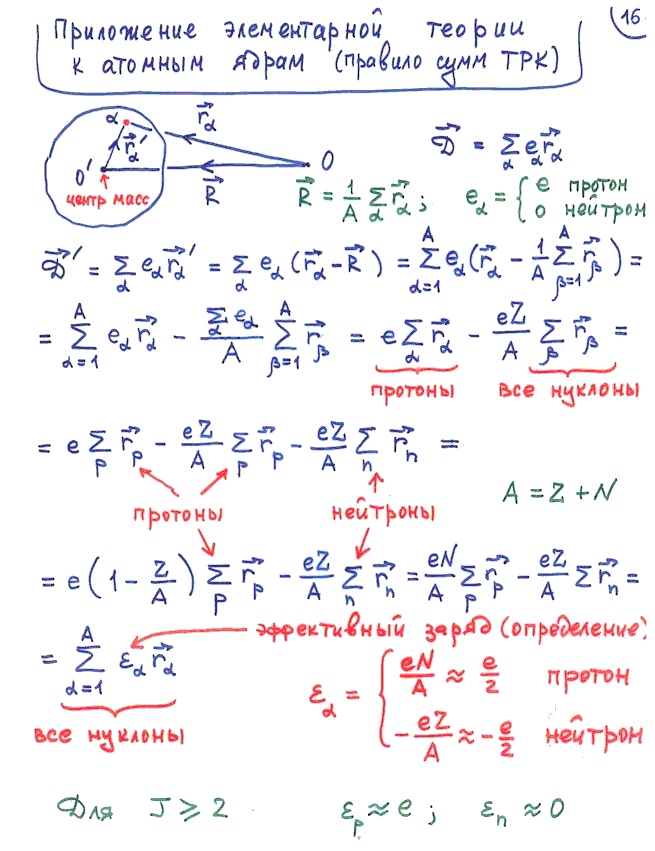 16
Приложение элементарной теории
к атомным ядрам (правило сумм ТРК)
α r⃗_α O
r⃗_α′ O′ R⃗
центр масс
D⃗ = Σ_α e_α r⃗_α
R⃗ = 1/A Σ_α r⃗_α ; e_α = { e протон
0 нейтрон
D⃗′ = Σ_α e_α r⃗_α′ = Σ_α e_α (r⃗_α - R⃗) = Σ_{α=1}^{A} e_α (r⃗_α - 1/A Σ_{β=1}^{A} r⃗_β) =
= Σ_{α=1}^{A} e_α r⃗_α - (Σ_α e_α)/A Σ_{β=1}^{A} r⃗_β = e Σ_α r⃗_α - eZ/A Σ_β r⃗_β =
протоны все нуклоны
= e Σ_p r⃗_p - eZ/A Σ_p r⃗_p - eZ/A Σ_n r⃗_n =
A = Z + N
протоны нейтроны
= e (1 - Z/A) Σ_p r⃗_p - eZ/A Σ_n r⃗_n = eN/A Σ_p r⃗_p - eZ/A Σ r⃗_n =
эффективный заряд (определение)
= Σ_{α=1}^{A} ε_α r⃗_α
все нуклоны
ε_α = { eN/A ≈ e/2 протон
-eZ/A ≈ -e/2 нейтрон
Для J ⩾ 2 ε_p ≈ e ; ε_n ≈ 0